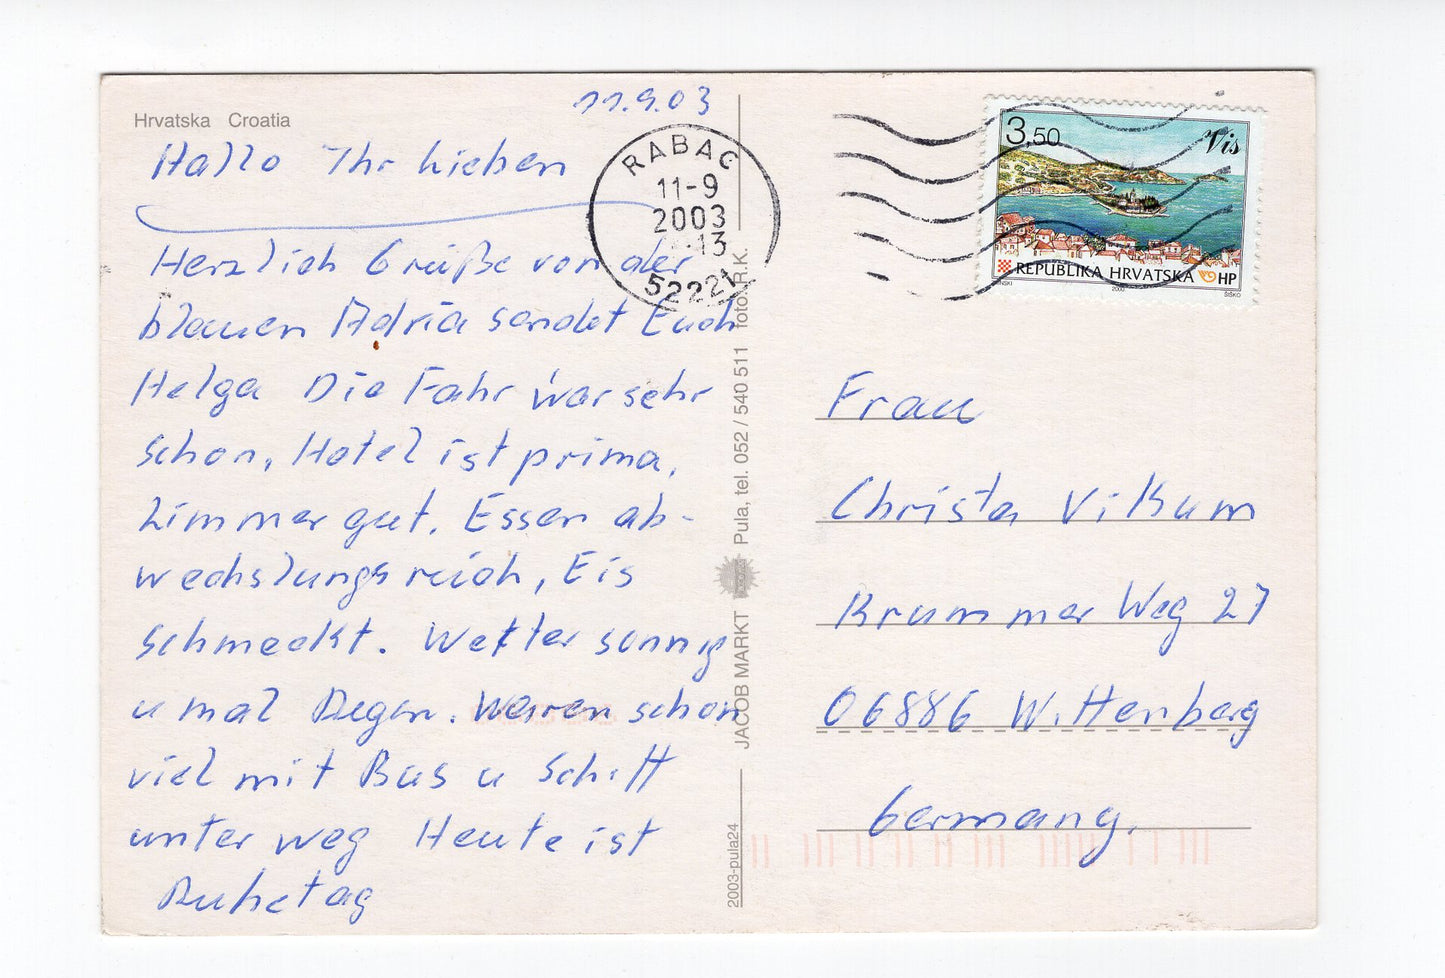 Hrvatska Croatia
11.9.03
Hallo Ihr Lieben
Herzlich Grüße von der
blauen Adria sendet Euch
Helga Die Fahr war sehr
schon, Hotel ist prima,
Zimmer gut, Essen ab-
wechslungsreich, Eis
schmeckt. Wetter sonnig
u mal Regen. Waren schon
viel mit Bus u Schiff
unter weg Heute ist
Ruhetag
RABAC
11-9
2003
13
52221
JACOB MARKT Pula, tel. 052 / 540 511 foto: R.K.
2003-pula24
3,50
Vis
REPUBLIKA HRVATSKA HP
2000 ŠIŠKO
Frau
Christa Vikum
Krummer Weg 27
06886 Wittenberg
Germany.